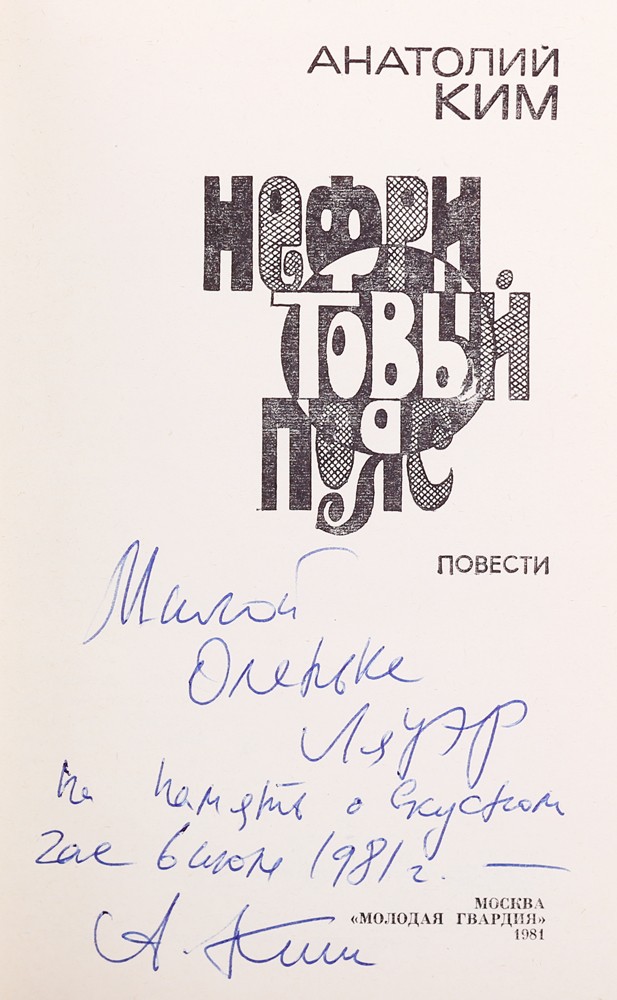 АНАТОЛИЙ
КИМ
НЕФРИ
ТОВЫЙ
ПОЯС
ПОВЕСТИ
Милой
Оленьке
Ляуэр
на память о вкусном
1981 г. —
А. Ким
МОСКВА
«МОЛОДАЯ ГВАРДИЯ»
1981